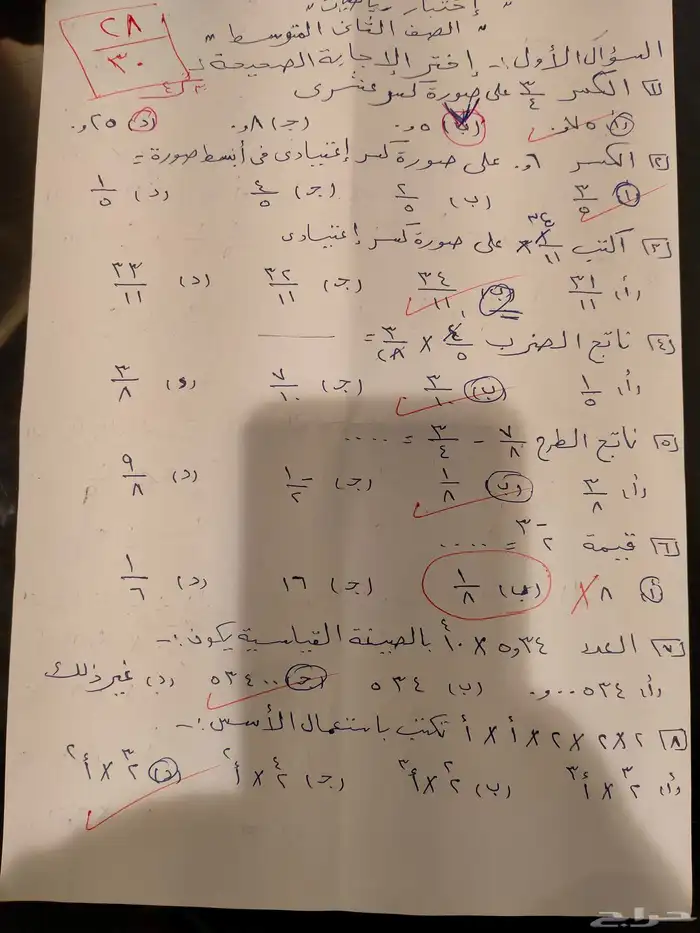 إختبار رياضيات
" الصف الثانى المتوسط "
٢٨
٣٠
السؤال الأول :- إختر الإجابة الصحيحة :-
١) الكسر ٣/٤ على صورة كسر عشرى
(أ) ٧٥و. (ب) ٥و. (جـ) ٨و. (د) ٢٥و.
٢) الكسر ٦و. على صورة كسر إعتيادى فى أبسط صورة =
(أ) ٣/٥ (ب) ٢/٥ (جـ) ٤/٥ (د) ١/٥
٣) اكتب ٣ ١/١١ على صورة كسر إعتيادى
(أ) ٣١/١١ (ب) ٣٤/١١ (جـ) ٣٢/١١ (د) ٣٣/١١
٤) ناتج الضرب ٤/٥ × ٣/٨ =
(أ) ١/٥ (ب) ٣/١٠ (جـ) ٧/١٠ (د) ٣/٨
٥) ناتج الطرح ٧/٨ - ٣/٤ = ....
(أ) ٣/٨ (ب) ١/٨ (جـ) ١/٢ (د) ٩/٨
٦) قيمة ٢^-٣ = ....
(أ) ٨ (ب) ١/٨ (جـ) ١٦ (د) ١/٦
٧) العدد ٣٤و٥ × ١٠^٤ بالصيغة القياسية يكون :-
(أ) ٥٣٤...و. (ب) ٥٣٤ (جـ) ٥٣٤٠٠ (د) غير ذلك
٨) ٢×٢×٢×أ×أ تكتب باستعمال الأسس :-
(أ) ٢^٣ × أ^٣ (ب) ٢^٢ × أ^٣ (جـ) ٢^٤ × أ^٢ (د) ٢^٣ × أ^٢
حراج